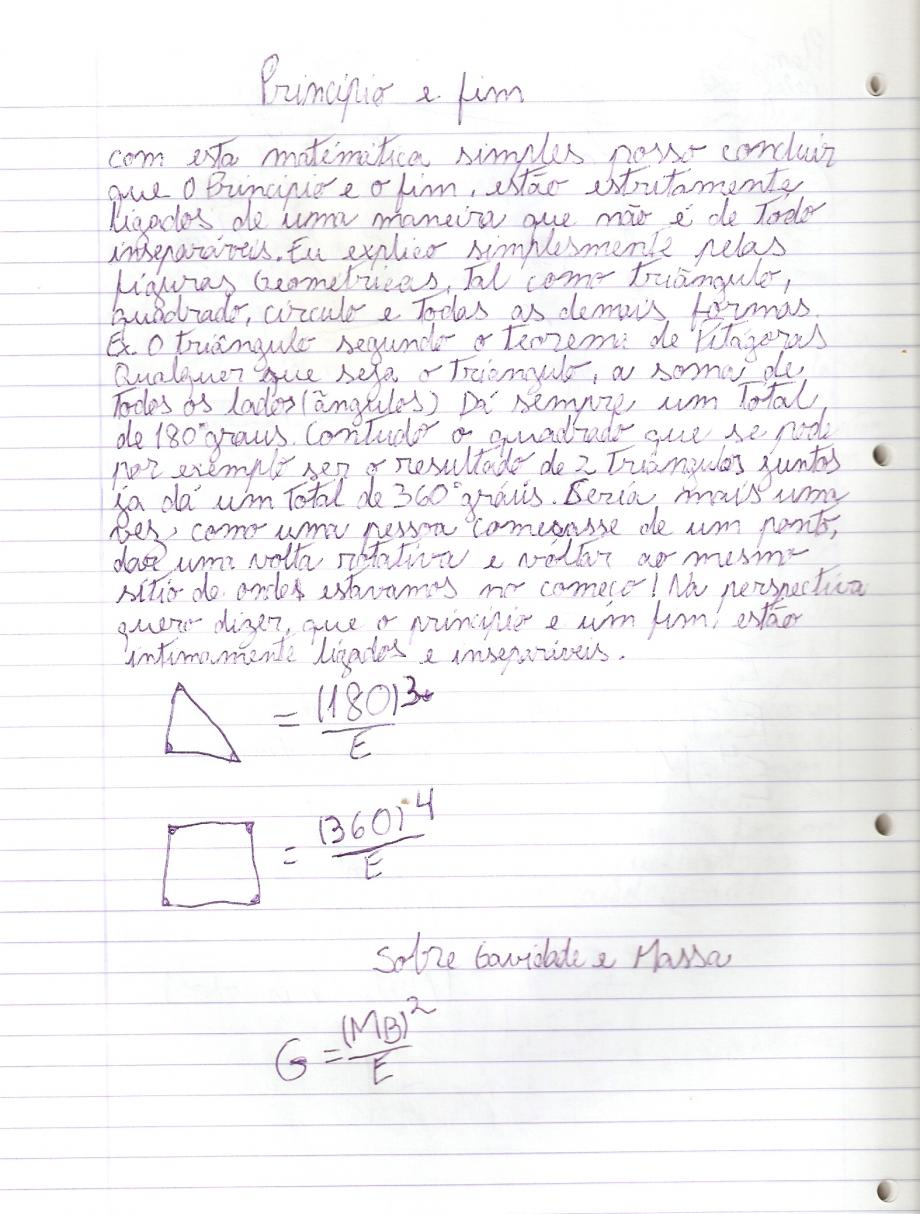 Principio e fim
com esta matématica simples posso concluir
que O Principio e o fim, estão estritamente
ligados de uma maneira que não é de Todo
inseparáveis. Eu explico simplesmente pelas
figuras Geométricas, Tal como Triângulo,
quadrado, circulo e Todas as demais formas.
Ex. O triângulo segundo o Teorema de Pitágoras
Qualquer que seja o Triângulo, a soma de
Todos os lados (ângulos) Dá sempre um Total
de 180° graus. Contudo o quadrado que se pode
por exemplo ser o resultado de 2 Triângulos juntos
ja dá um Total de 360° gráus. Seria mais uma
vez, como uma pessoa começasse de um ponto,
dar uma volta rotativa e voltar ao mesmo
sitio de ondes estavamos no começo! Na perspectiva
quero dizer, que o principio e um fim, estão
intimamente ligados e inseparáveis.
= (180)3
E
= (360)4
E
Sobre Gavidade e Massa
G = (MB)2
E